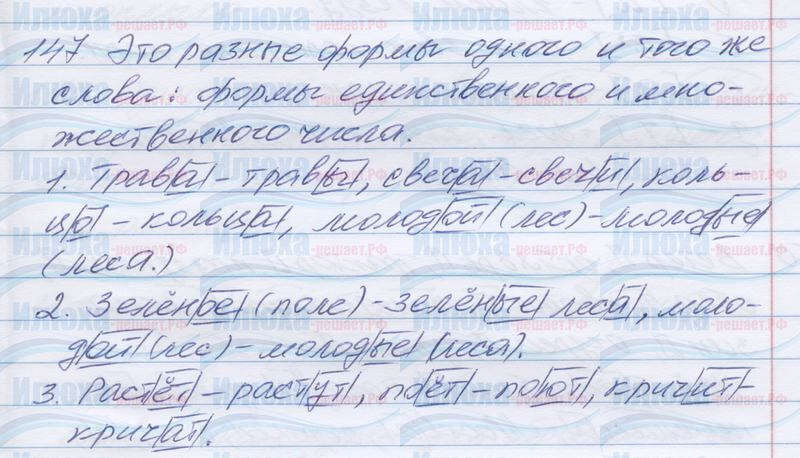 147 Это разные формы одного и того же
слова: формы единственного и мно-
жественного числа.
1. Трава - травы, свеча - свечи, коль-
цо - кольца, молодой (лес) - молодые
(леса.)
2. Зелёное (поле) - зелёные леса, моло-
дой (лес) - молодые (леса).
3. Растёт - растут, поёт - поют, кричит -
кричат.